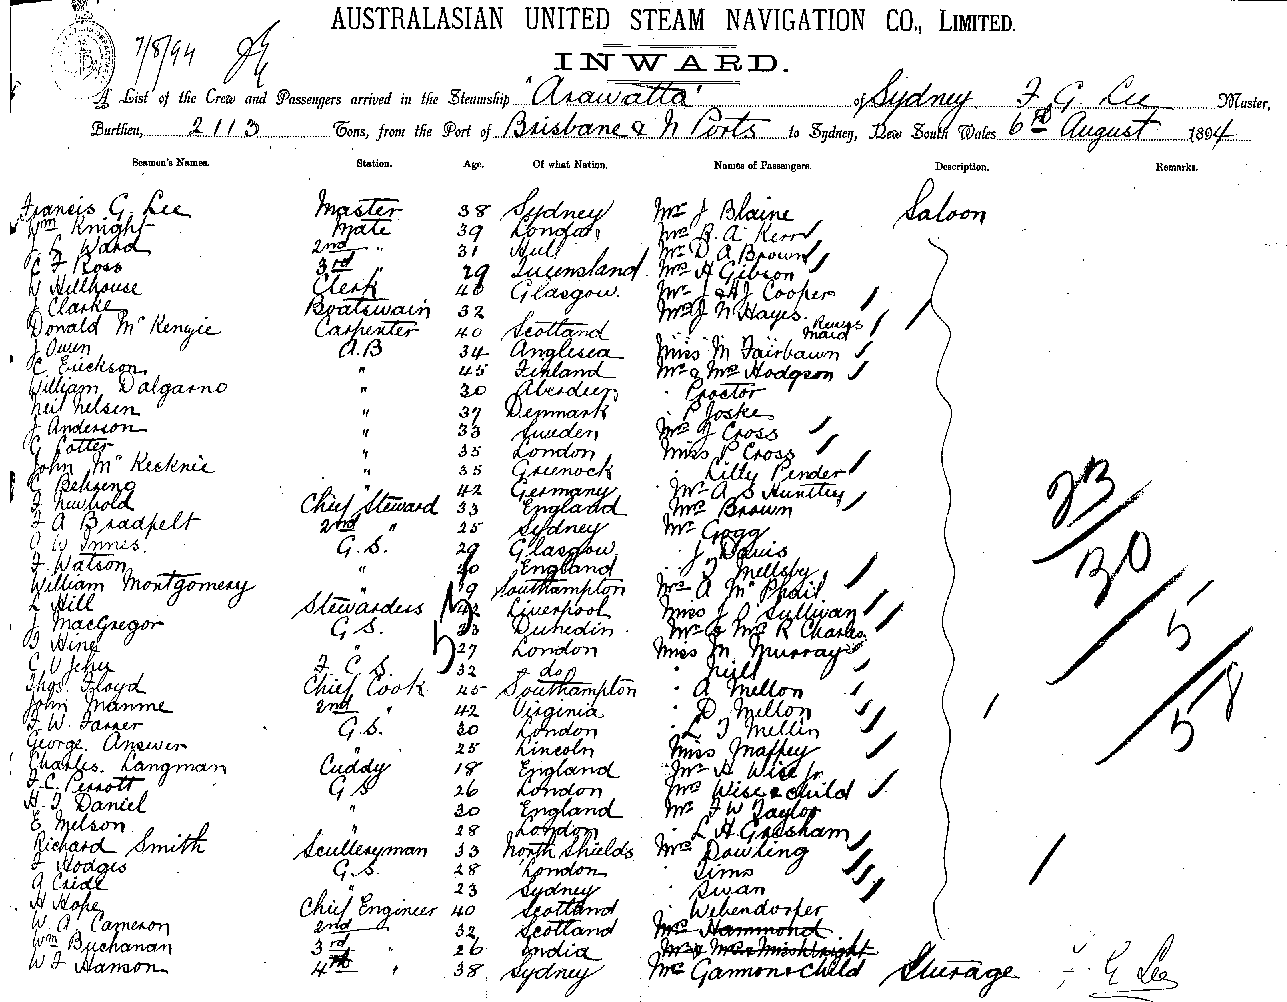 AUSTRALASIAN UNITED STEAM NAVIGATION CO., LIMITED.
7/8/94
INWARD.
A List of the Crew and Passengers arrived in the Steamship "Arawatta" of Sydney F. G. Lee Master,
Burthen, 2113 Tons, from the Port of Brisbane & N Ports to Sydney, New South Wales 6th August 1894
Seamen's Names. Station. Age. Of what Nation. Names of Passengers. Description. Remarks.
Francis G. Lee Master 38 Sydney Mr J Blaine Saloon
Wm Knight Mate 39 London Mr R. A. Kerr
J E Ward 2nd " 31 Hull Mr D A Brown
C F Ross 3rd " 29 Queensland Mrs H Gibson
W Hillhouse Clerk 40 Glasgow. Mr J & A J Cooper
J Clarke Boatswain 32 Mrs J N Hayes.
Donald McKenzie Carpenter 40 Scotland maid
J Owen A.B 34 Anglesea Miss M Fairbawn
C Erickson " 45 Finland Mr & Mrs Hodgson
William Dalgarno " 30 Aberdeen " Proctor
Neil Nelsen " 37 Denmark " P Joske
J Anderson " 33 Sweden Mrs J Cross
G Cotter " 35 London Miss P Cross
John McKecknie " 35 Greenock " Lilly Pender
C Behreng " 42 Germany Mr A S Huntley
F Newbold Chief Steward 33 England Mrs Brown
F A Bradpelt 2nd " 25 Sydney Mr Gogg
O W Innes. G.S. 29 Glasgow " J Davis
F Watson " 20 England " T Mellsby
William Montgomery " 19 Southampton Mrs A McPhail
L Hill Stewardess 42 Liverpool Miss J O Sullivan
J MacGregor G S. 23 Dunedin Mr & Mrs R Charles
B Hine " 27 London Miss M Murray
C V Jehu F. C. S. 32 do " Neill
Thos. Floyd Chief Cook 45 Southampton " A Mellon
John Manme 2nd " 42 Virginia " D Mellon
F W. Farrer G.S. 30 London " L J Mellin
George Answer 25 Lincoln Miss Maffey
Charles Langman Cuddy 18 England Mr H Wise Jr
F. C. Perrott G S 26 London Mrs Wise & child
H. J Daniel " 20 England Mr F W Taylor
E Melson " 28 London " L H Gresham
Richard Smith Sculleryman 33 North Shields Mrs Dowling
F Hodges G.S. 28 London " Sims
A Cride " 23 Sydney " Swan
H Hope Chief Engineer 40 Scotland " Webendorfer
W. A. Cameron 2nd " 32 Scotland Mrs Hammond
Wm Buchanan 3rd " 26 India Mr & Mrs & Miss Wright
W F Hanson 4th " 38 Sydney Mrs Gannon & child Steerage F G Lee
53
23
30
5
58